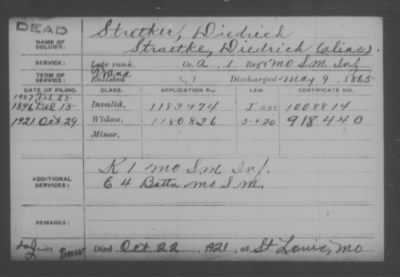 DEAD
NAME OF SOLDIER: Stratker, Diedrich
Straetke, Diedrich (alias).
SERVICE: Late rank, Co. A. 1 Reg't Mo S.M. Inf
TERM OF SERVICE: Enlisted 1 Discharged May 9, 1865
DATE OF FILING. CLASS. APPLICATION NO. LAW. CERTIFICATE NO.
1896 Invalid, 1183474 1008814
1921 Oct 29 Widow, 1180826 918440
Minor,
ADDITIONAL SERVICES: K 1 Mo S.M. Inf.
E 4 Battn Mo S.M.
REMARKS:
Died Oct 22, 1921, at St Louis, Mo